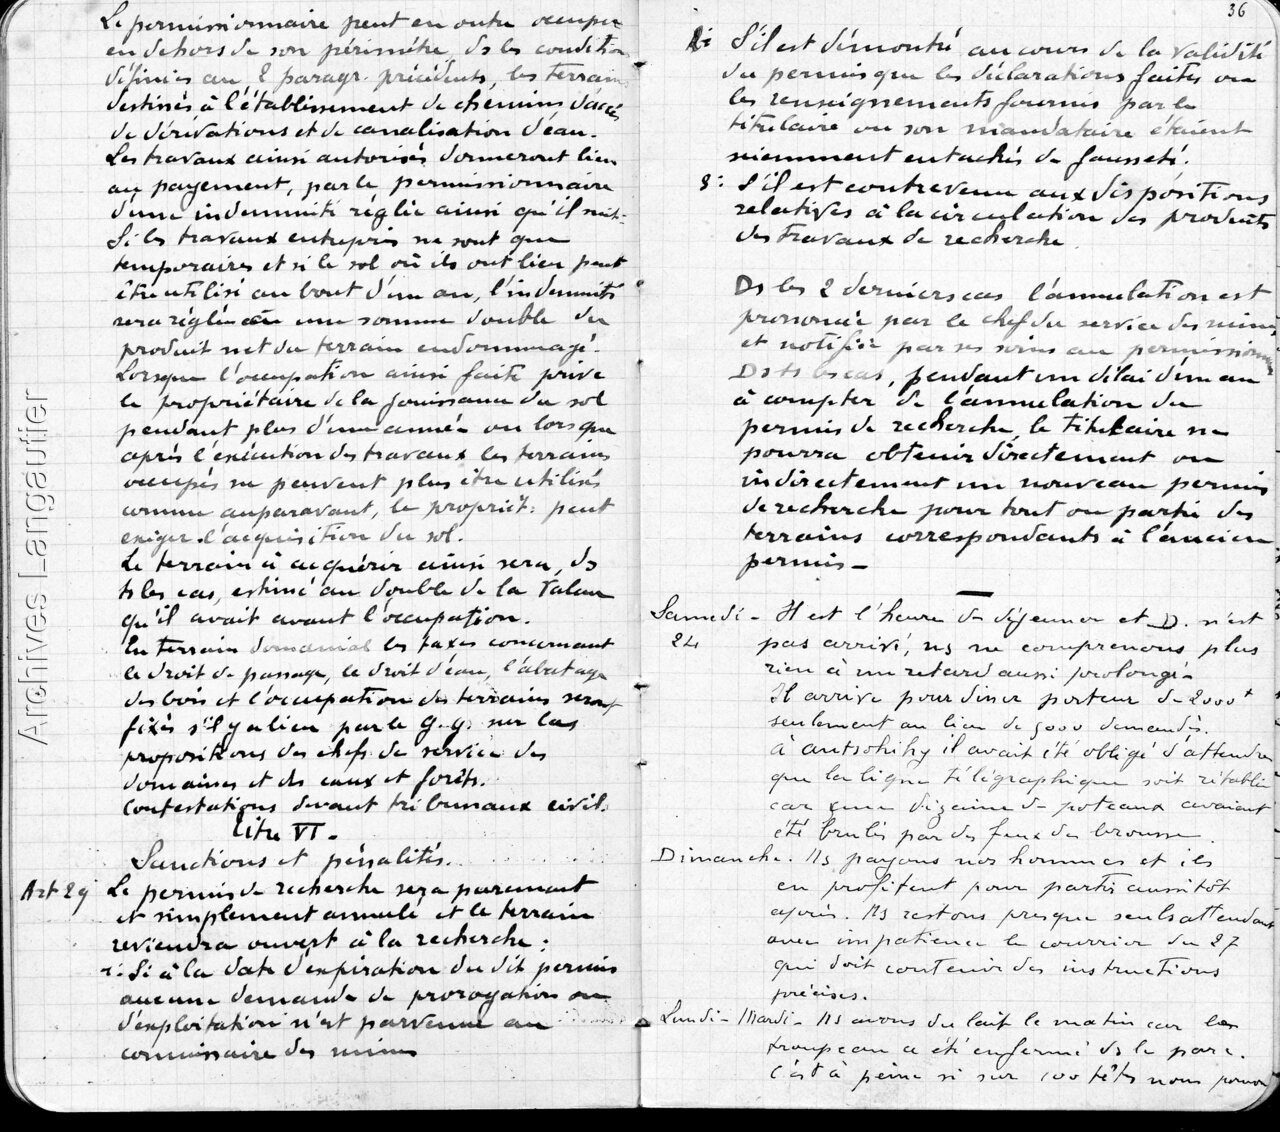 Le permissionnaire peut en outre occuper
en dehors de son périmètre, ds les conditions
définies au 2 paragr. précédents, les terrains
destinés à l'établissement de chemins d'accès
de dérivations et de canalisation d'eau.
Les travaux ainsi autorisés donneront lieu
au payement, par le permissionnaire
d'une indemnité réglée ainsi qu'il suit:
Si les travaux entrepris ne sont que
temporaires et si le sol où ils ont lieu peut
être utilisé au bout d'un an, l'indemnité
sera réglée à une somme double du
produit net du terrain endommagé.
Lorsque l'occupation ainsi faite prive
le propriétaire de la jouissance du sol
pendant plus d'une année ou lorsque
après l'exécution des travaux les terrains
occupés ne peuvent plus être utilisés
comme auparavant, le propriét: peut
exiger l'acquisition du sol.
Le terrain à acquérir ainsi sera, ds
ts les cas, estimé au double de la valeur
qu'il avait avant l'occupation.
En terrain domanial les taxes concernant
le droit de passage, le droit d'eau, l'abatage
des bois et l'occupation des terrains seront
fixés s'il y a lieu par le G.G. sur les
propositions des chefs de service des
domaines et des eaux et forêts.
Contestations devant tribunaux civils
Titre VI.
Sanctions et pénalités.
Art 29 Le permis de recherche sera purement
et simplement annulé et le terrain
reviendra ouvert à la recherche:
1: Si à la date d'expiration du dit permis
aucune demande de prorogation ou
d'exploitation n'est parvenue au
commissaire des mines
36
2: S'il est démontré au cours de la validité
du permis que les déclarations faites ou
les renseignements fournis par le
titulaire ou son mandataire étaient
sciemment entachés de fausseté.
3: S'il est contrevenu aux dispositions
relatives à la circulation des produits
des travaux de recherche.
Ds les 2 derniers cas l'annulation est
prononcée par le chef du service des mines
et notifiée par ses soins au permissionnaire
Ds ts les cas, pendant un délai d'un an
à compter de l'annulation du
permis de recherche, le titulaire ne
pourra obtenir directement ou
indirectement un nouveau permis
de recherche pour tout ou partie des
terrains correspondants à l'ancien
permis —
Samedi - Il est l'heure de déjeuner et D. n'est
24 pas arrivé, ns ne comprenons plus
rien à un retard aussi prolongé
Il arrive pour diner porteur de 2000 f
seulement au lieu de 5000 demandés.
à antsohihy il avait été obligé d'attendre
que la ligne télégraphique soit rétablie
car une dizaine de poteaux avaient
été brulés par des feux de brousse
Dimanche. Ns payons nos hommes et ils
en profitent pour partir aussitôt
après. Ns restons presque seuls attendant
avec impatience le courrier du 27
qui doit contenir des instructions
précises.
Lundi - Mardi - Ns avons du lait le matin car les
troupeau a été enfermé ds le parc.
C'est à peine si sur 100 têtes nous pouvons
Archives Langautier